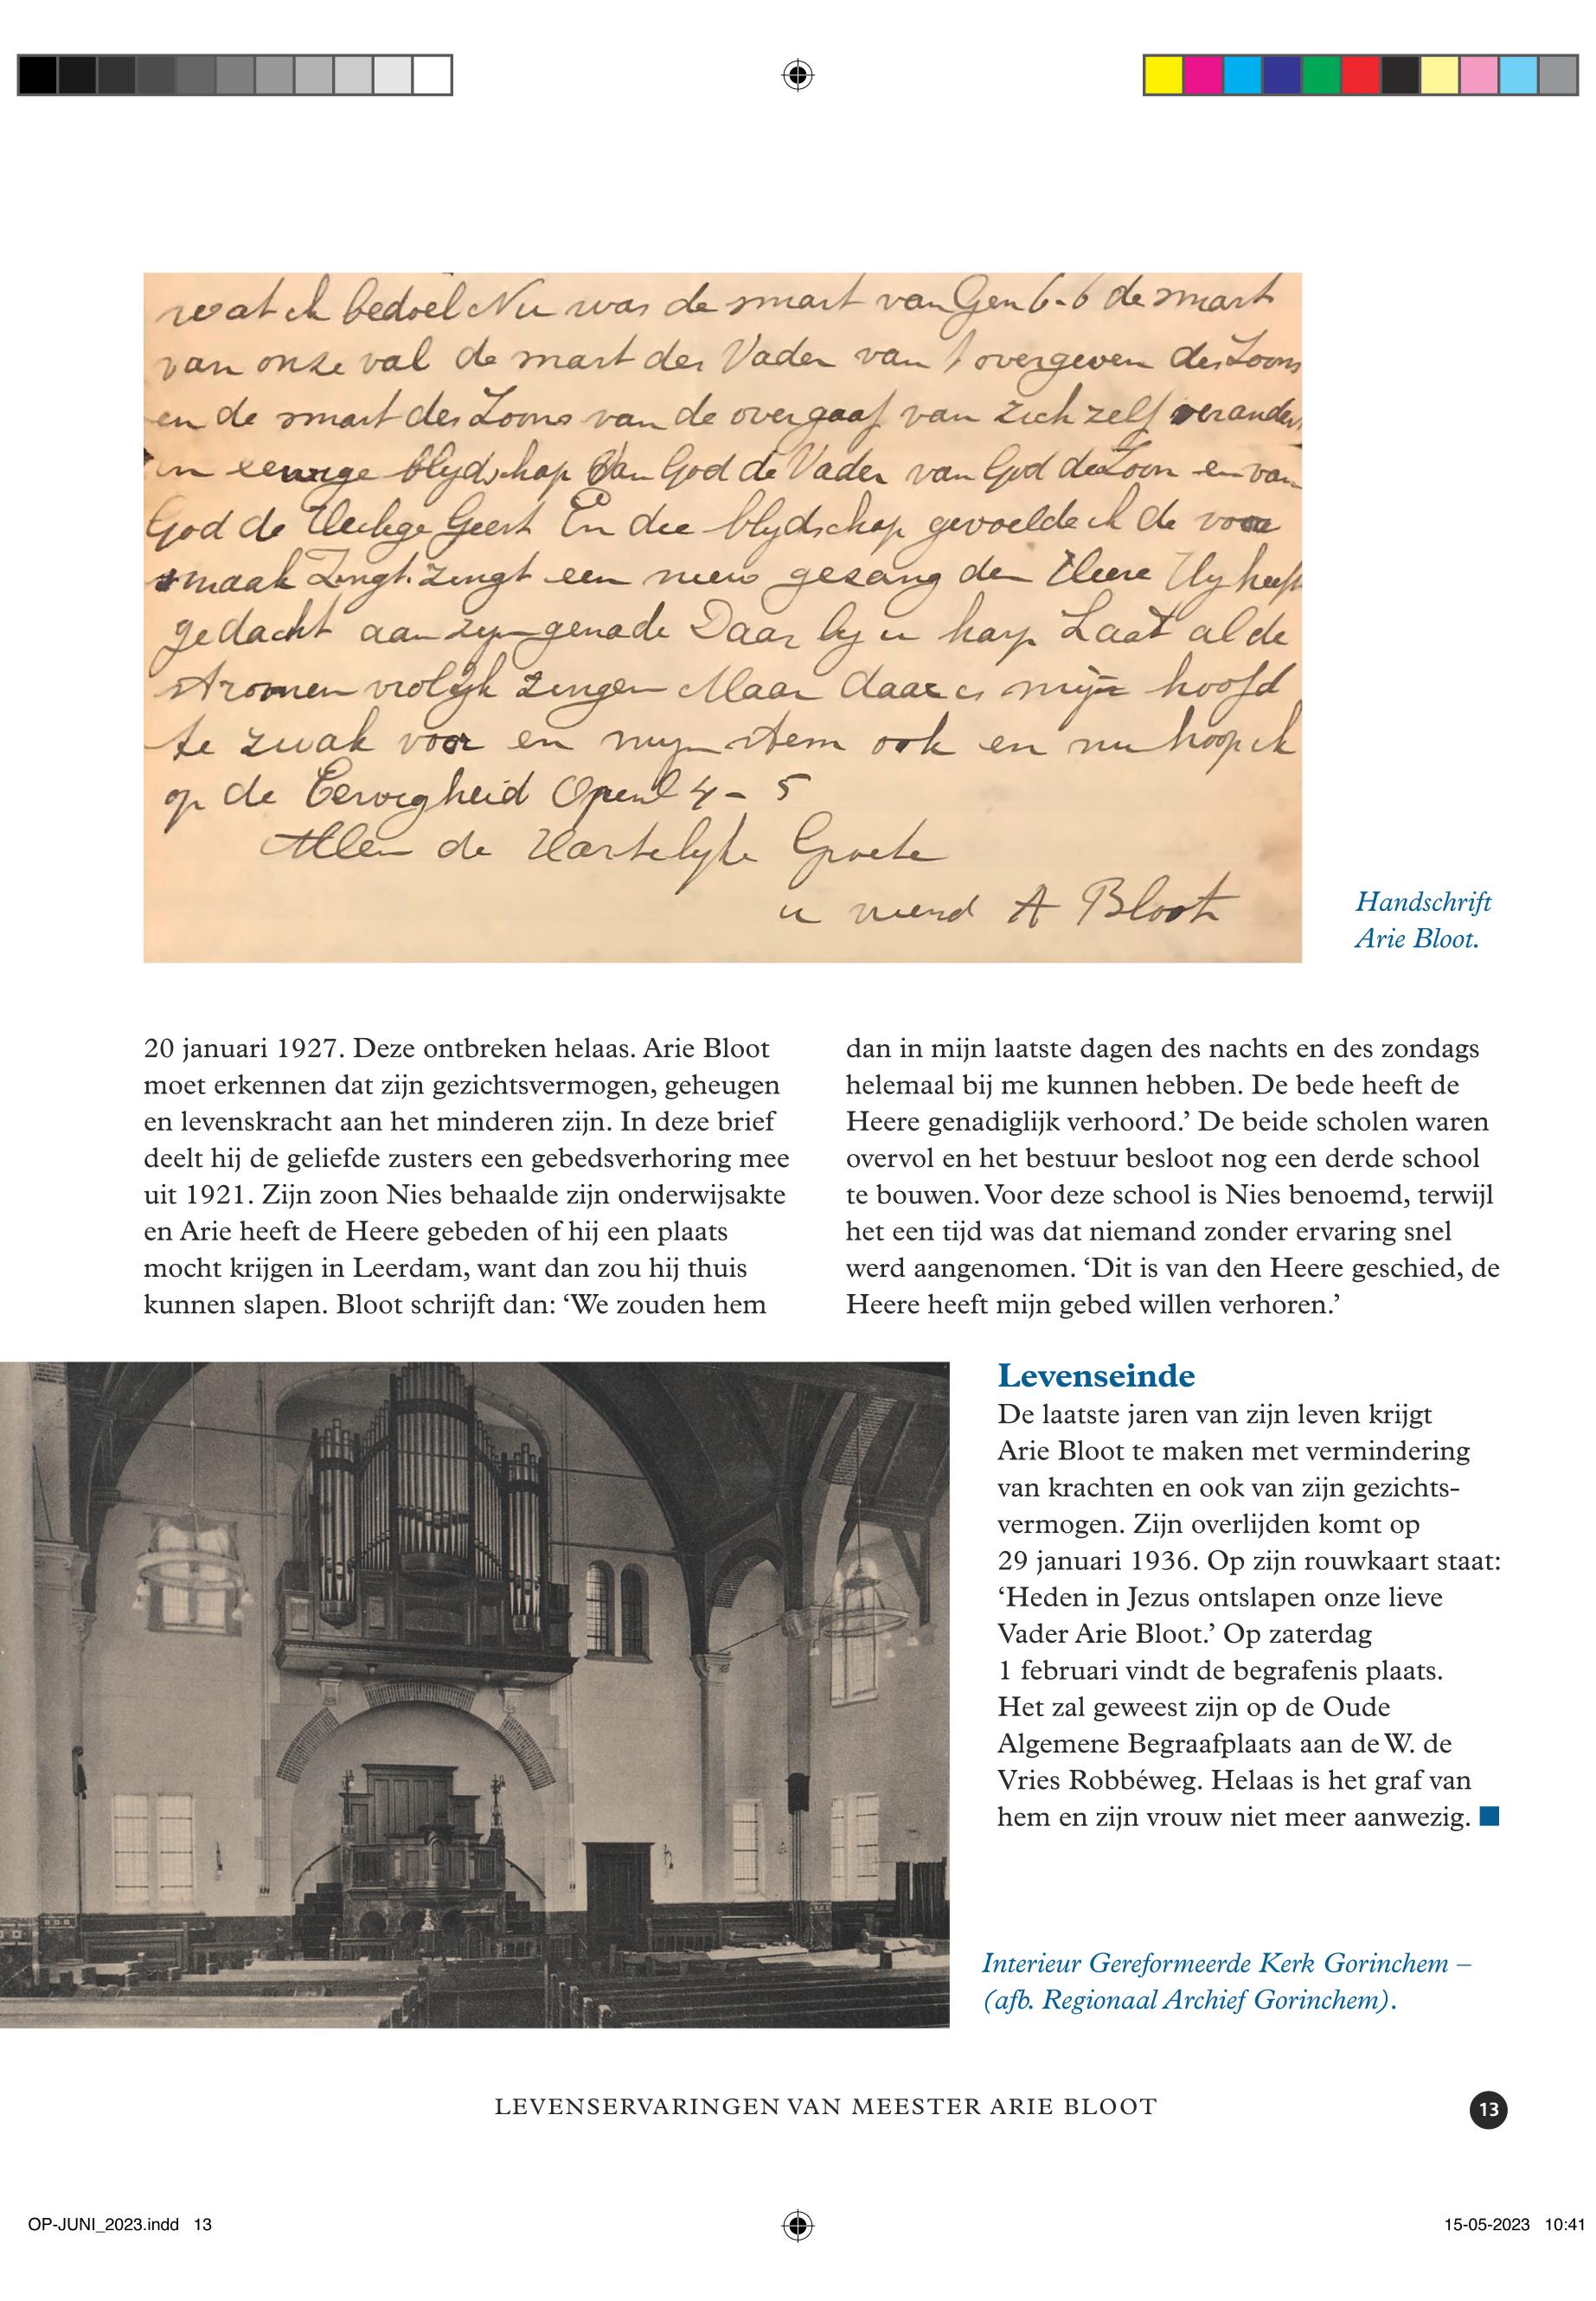 wat ik bedoel Nu was de smart van Gen 6-6 de smart
van onze val de smart des Vader van t overgeven des Zoons
en de smart des Zoons van de overgaaf van zich zelf verander
in eeuwige blydschap Van God de Vader van God de Zoon en van
God de Heilige Geest En die blydschap gevoelde ik de voor
smaak Zingt. zingt een nieuw gezang den Heere Hy heeft
gedacht aan zyn genade Daar by u harp Laat al de
stromen vrolijk zingen Maar daar is mijn hoofd
te zwak voor en myn stem ook en nu hoop ik
op de Eeuwigheid Openb 4 - 5
Allen de Hartelyke Groete
u vriend A Bloot
Handschrift
Arie Bloot.
20 januari 1927. Deze ontbreken helaas. Arie Bloot
moet erkennen dat zijn gezichtsvermogen, geheugen
en levenskracht aan het minderen zijn. In deze brief
deelt hij de geliefde zusters een gebedsverhoring mee
uit 1921. Zijn zoon Nies behaalde zijn onderwijsakte
en Arie heeft de Heere gebeden of hij een plaats
mocht krijgen in Leerdam, want dan zou hij thuis
kunnen slapen. Bloot schrijft dan: ‘We zouden hem
dan in mijn laatste dagen des nachts en des zondags
helemaal bij me kunnen hebben. De bede heeft de
Heere genadiglijk verhoord.’ De beide scholen waren
overvol en het bestuur besloot nog een derde school
te bouwen. Voor deze school is Nies benoemd, terwijl
het een tijd was dat niemand zonder ervaring snel
werd aangenomen. ‘Dit is van den Heere geschied, de
Heere heeft mijn gebed willen verhoren.’
Levenseinde
De laatste jaren van zijn leven krijgt
Arie Bloot te maken met vermindering
van krachten en ook van zijn gezichts-
vermogen. Zijn overlijden komt op
29 januari 1936. Op zijn rouwkaart staat:
‘Heden in Jezus ontslapen onze lieve
Vader Arie Bloot.’ Op zaterdag
1 februari vindt de begrafenis plaats.
Het zal geweest zijn op de Oude
Algemene Begraafplaats aan de W. de
Vries Robbéweg. Helaas is het graf van
hem en zijn vrouw niet meer aanwezig.
Interieur Gereformeerde Kerk Gorinchem –
(afb. Regionaal Archief Gorinchem).
LEVENSERVARINGEN VAN MEESTER ARIE BLOOT
13
OP-JUNI_2023.indd 13
15-05-2023 10:41